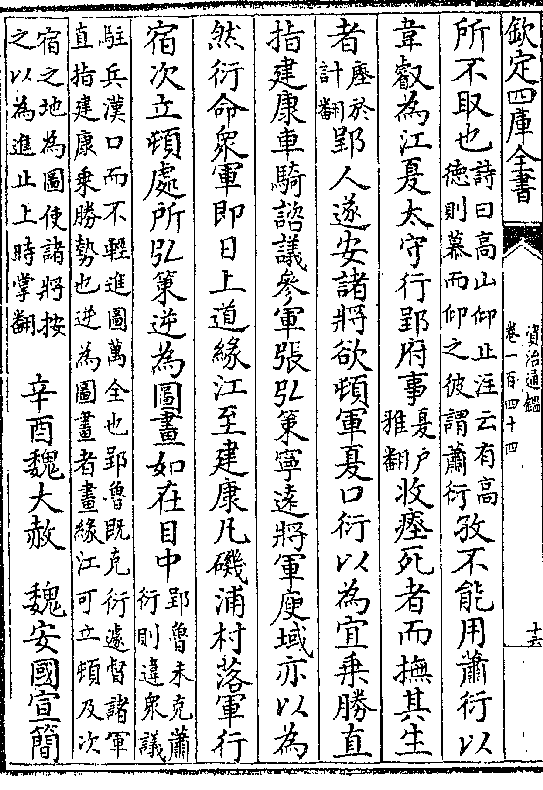 欽定四庫全書
資治通鑑
卷一百四十四
十六
所不取也
詩曰高山仰止注云有高
德則慕而仰之彼謂蕭衍
孜不能用蕭衍以
韋叡為江夏太守行郢府事
夏户
雅翻
收瘞死者而撫其生
者
瘞於
計翻
郢人遂安諸將欲頓軍夏口衍以為宜乗勝直
指建康車騎諮議參軍張弘策寧逺將軍庾域亦以為
然衍命衆軍即日上道緣江至建康凡磯浦村落軍行
宿次立頓處所弘策逆為圖畫如在目中
郢魯未克蕭
衍則違衆議
駐兵漢口而不輕進圖萬全也郢魯既克衍遽督諸軍
直指建康乗勝勢也逆為圖畫者畫緣江可立頓及次
宿之地為圖使諸將按
之以為進止上時掌翻
辛酉魏大赦 魏安國宣簡